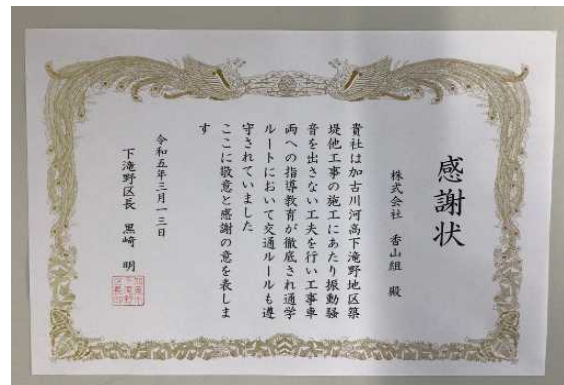 感謝状
株式会社 香山組 殿
貴社は加古川河高下滝野地区築
堤他工事の施工にあたり振動騒
音を出さない工夫を行い工事車
両への指導教育が徹底され通学
ルートにおいて交通ルールも遵
守されていました
ここに敬意と感謝の意を表しま
す
令和五年三月一三日
下滝野区長 黒崎 明